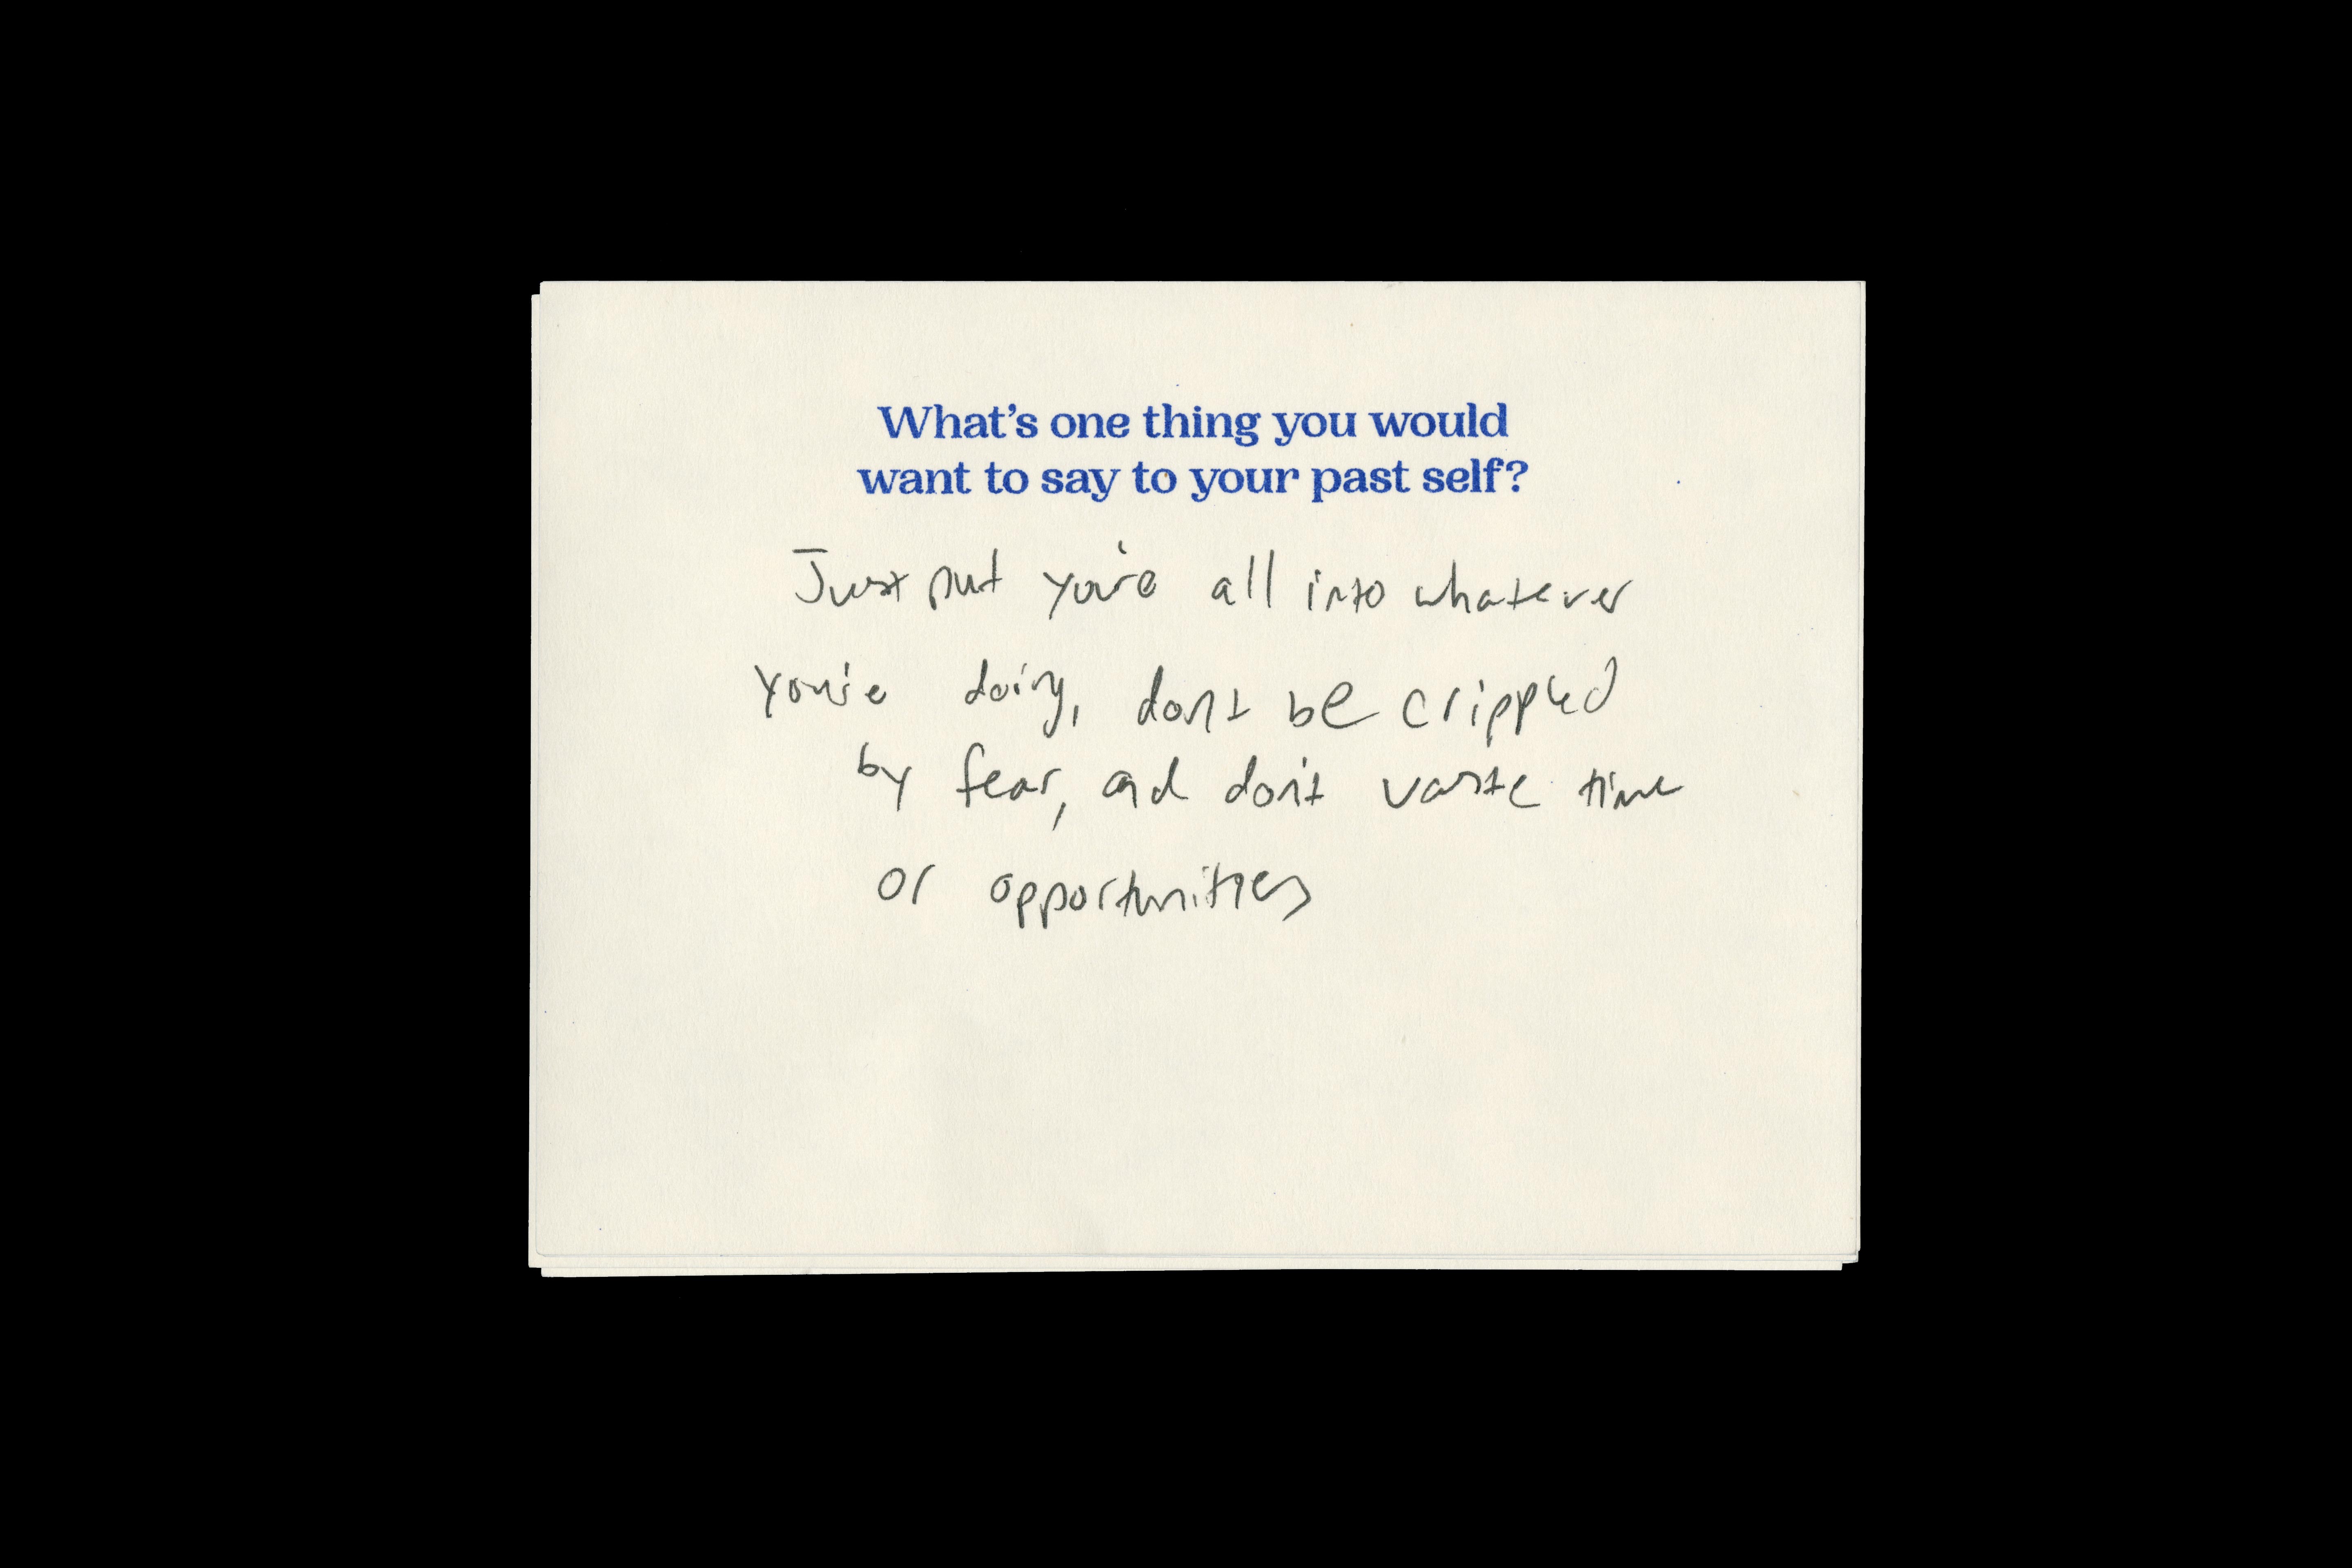 What's one thing you would
want to say to your past self?
Just put you're all into whatever
you're doing, dont be crippled
by fear, and don't waste time
or opportunities